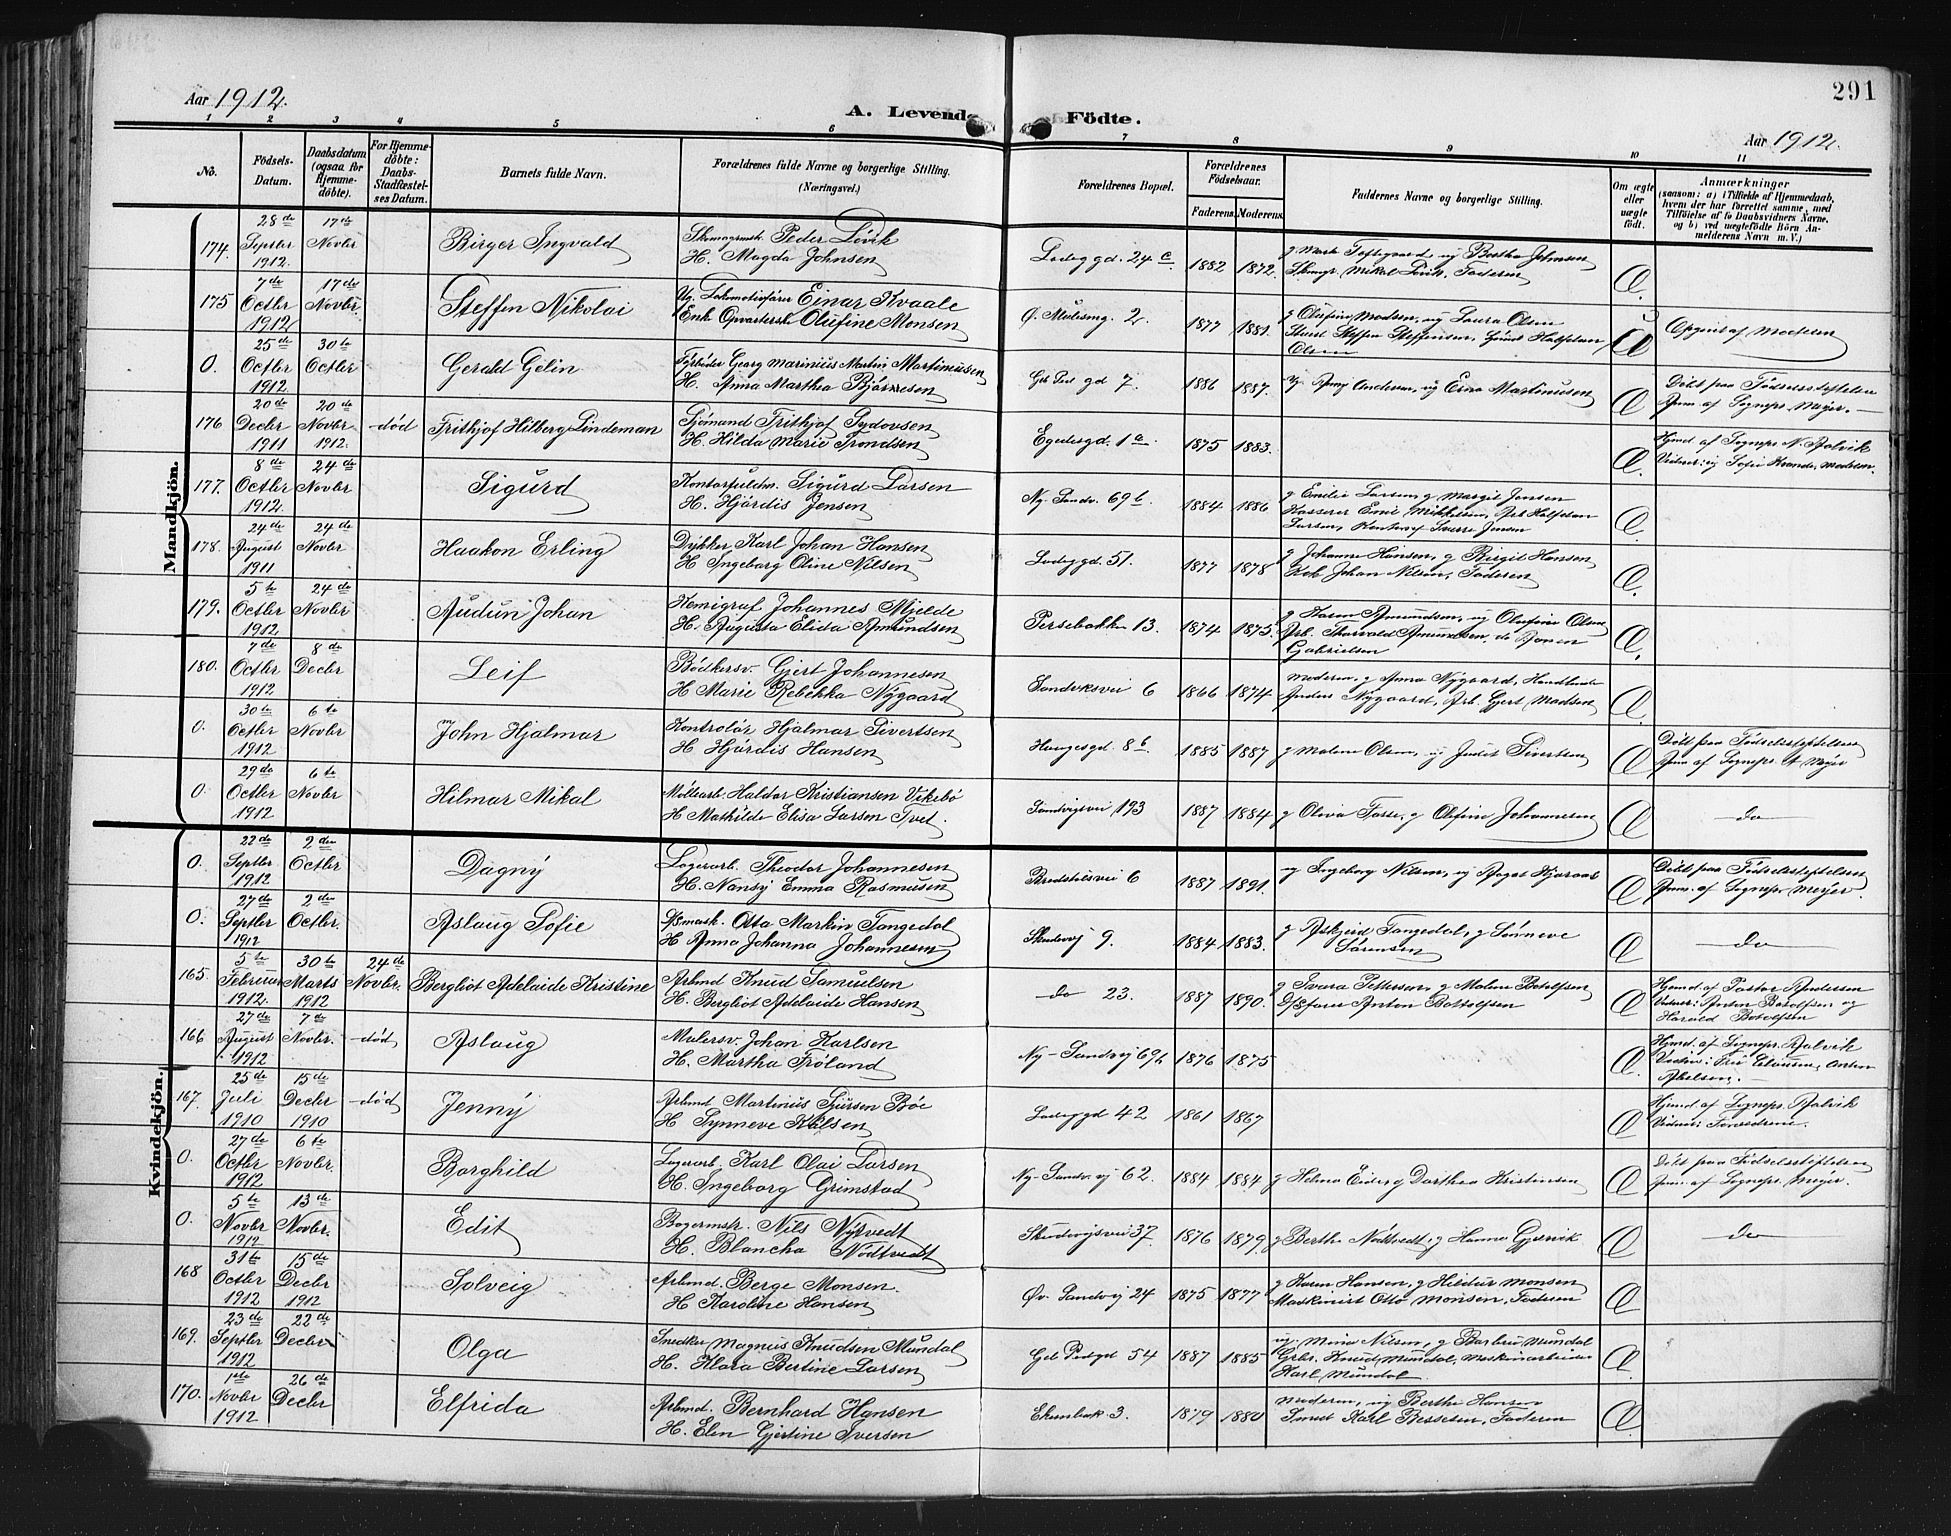 Aar 1912.
A. Levende Födte.
291
Aar 1912.
1 2 3 4 5 6 7 8 9 10 11
No.
Födsels-Datum.
Daabsdatum (ogsaa for Hjemme-döbte).
For Hjemme-döbte: Daabs-Stadfæstel-ses Datum.
Barnets fulde Navn.
Forældrenes fulde Navne og borgerlige Stilling.
(Næringsvei.)
Forældrenes Bopæl.
Forældrenes Födselsaar.
Faderens. Moderens.
Faddernes Navne og borgerlige Stilling.
Om ægte eller uægte födt.
Anmærkninger
(saasom: a) i Tilfælde af Hjemmedaab,
hvem der har forrettet samme, med
Tilföielse af to Daabsvidners Navne,
og b) ved uægtefödte Börn An-
melderens Navn m. V.)
Mandkjön.
174. 28de Septbr 1912. 17de Novbr Birger Ingvald
Skomagermstr. Peder Lövik
H. Magda Johnsen
Ladeggd. 24 c. 1882 1872.
Skmgr. Mikal Lövik, Faderen
Æ.
175 7de Octbr 1912 17de Novbr. Steffen Nikolai
Ug. Lokomotivfører Einar Kvaale
Enke Opvartersk Olufine Monsen
Ø. Mulesmg. 2. 1877 1881.
g Olufine Madsen, ug Laura Olsen
Stuert Steffen Steffensen,
Olsen
Opgivet af Moderen
0. 25de Octbr 1912 30te Octbr Gerald Gelin
Fyrbøder Georg Marinius Martin Martiniusen
H. Anna Marthea Bjørnesen
Gd. Ped gd 7. 1886 1887.
ug Anny Andersen, ug Erna Martinusen
Æ
Döbt paa Födselsstiftelsen
Anm af Sognepr. Meyer.
176 20de Decbr 1911 20de Novbr. 1912. död Frithjof Hilberg Lindeman
Sjömand Frithjof Sydovsen
H. Hilda Marie Trondsen
Egedesgd. 1 a. 1875 1883.
Æ.
Hjmd. af Sognepr. N. Aalvik
177. 8de Octbr 1912. 24de Novbr Sigurd
Kontorfuldm. Sigurd Larsen
H. Hjördis Jensen
Ny. Sandv. 69 b. 1884 1886
g Emilie Larsen, g Margit Jensen
Kasserer Emil Mikkelsen, Arb Halfdan
Larsen, Kontorist Sverre Jensen
Æ
178. 24de August 1911 24de Novbr. Haakon Erling
Dykker Karl Johan Hansen
H Ingeborg Oline Nilsen
Ladeggd. 51. 1877 1878
g Johanne Hansen, g Birgit Hansen
Kok Johan Nilsen, Faderen
Æ.
179. 5te Octbr 1912 24de Novbr Audun Johan
Kemigraf Johannes Mjelde
H. Augusta Elida Amundsen
Persebakken 13. 1874 1875.
g Karen Amundsen, ug Olufine Olsen
Arb. Thorvald Amundsen, do
Gabrielsen
Æ.
180. 7de Octbr 1912 8de Decbr Leif
Bödkersv. Gjert Johannesen
H Marie Rebekka Nygaard
Sandviksvei 6 1866 1874
Moderen, g Anna Nygaard, Handlende
Anders Nygaard, Arb. Gjert Madsen
Æ.
0. 30te Octbr 1912 6te Novbr. John Hjalmar
Kontrolör Hjalmar Sivertsen
H Hjördis Hansen
Haugesgd. 8 b. 1885 1887
g Malene Olsen, ug Judit Sivertsen
Æ
Döbt paa Födselsstiftelsen
Anm af Sognepr. A Meyer
0. 29de Octbr 1912 6te Novbr. Hilmar Mikal
Møllearb. Haldor Kristiansen Vikebö
H Mathilde Elisa Larsen Tvet.
Sandvigsvei 193 1887 1884
g Oliva Fosse, g Olufine Johannesen
Æ
do
Kvindekjön.
0. 22de Septbr 1912 2den Octbr Dagny
Lagerarb. Theodor Johannesen
H. Nansy Emma Rasmusen
Bredstølsvei 6 1887 1891.
ug Ingeborg Nilsen, ug Aagot Hjaraas
Æ
Döbt paa Födselsstiftelsen
Anm. af Sognepr. Meyer.
0. 27de Septbr 1912 2den Octbr. Aslaug Sofie
Otto Markin Tangedal
H Anna Johanna Johannesen
Skudevej 9. 1884 1883.
g Askjerd Tangedal, g Sønneve
Sørensen
Æ
do
165. 5te Februar 1912. 30te Marts 1912 24de Novbr. Bergliot Adelaide Kristine
Arbmd Knud Samuelsen
H. Bergliot Adelaide Hansen
do 23. 1887 1890.
g Svara Pettersen, g Malene Botolfsen
Anton Bottolfsen
Æ
Hjemd. af Pastor Andersen
Vidner: Anton Botolfsen og
Harald Botolfsen
166 27de August 1912 7de Novbr. död Aslaug
Malersv. Johan Karlsen
H. Martha Fröland
Ny-Sandvej 69 b 1876 1875
Æ.
Hjmd. af Sognepr. Aalvik
167. 25de Juli 1910 15de Decbr 1910 död Jenny
Arbmd Martinus Sjursen Böe
H Synneve Nilsen
Ladeggd 42 1861 1867
Æ
Hjmd. af Sognepr. Aalvik
0. 27de Octbr 1912 6te Novbr. Borghild
Lagerarb. Karl Olai Larsen
H. Ingeborg Grimstad
Ny-Sandv. vj 62. 1884 1884
g Helma Eide, g Dorthea Kristensen
Æ
Döbt paa Födselsstiftelsen
Anm. af Sognepr. Meyer.
0. 5te Novbr 1912 13de Novbr. Edit
Bagermstr. Nils Nytvedt
H. Blancha Nödtvedt
Skudevigsvei 37. 1876 1879
g Berthe Nödtvedt, g Hanna Gjervik
Æ
do
168 31te Octbr 1912 15de Decbr 1912 Solveig
Arbmd. Berge Monsen.
H Karoline Hansen
Øv. Sandvj 24 1875 1877
g Karen Hansen, g Hildur Monsen
Maskinist Otto Monsen, Faderen
Æ
169. 23de Septbr 1912 22de Decbr. Olga
Snedker Magnus Knudsen Mundal
H. Klara Bertine Larsen
Gd Pedgd 54 1887 1885
ug. Mina Nilsen, g Barbro Mundal
Grbr. Knud Mundal, Maskinarbeider
Karl Mundal
Æ
170. 1ste Novbr 1912 26de Decbr Elfrida
Arbmd. Bernhard Hansen
H. Elen Gjertine Iversen
Ekrenbak 3. 1879 1880
Moderen, ug Berthe Hansen
Smed Karl Bessesen, Faderen
Æ